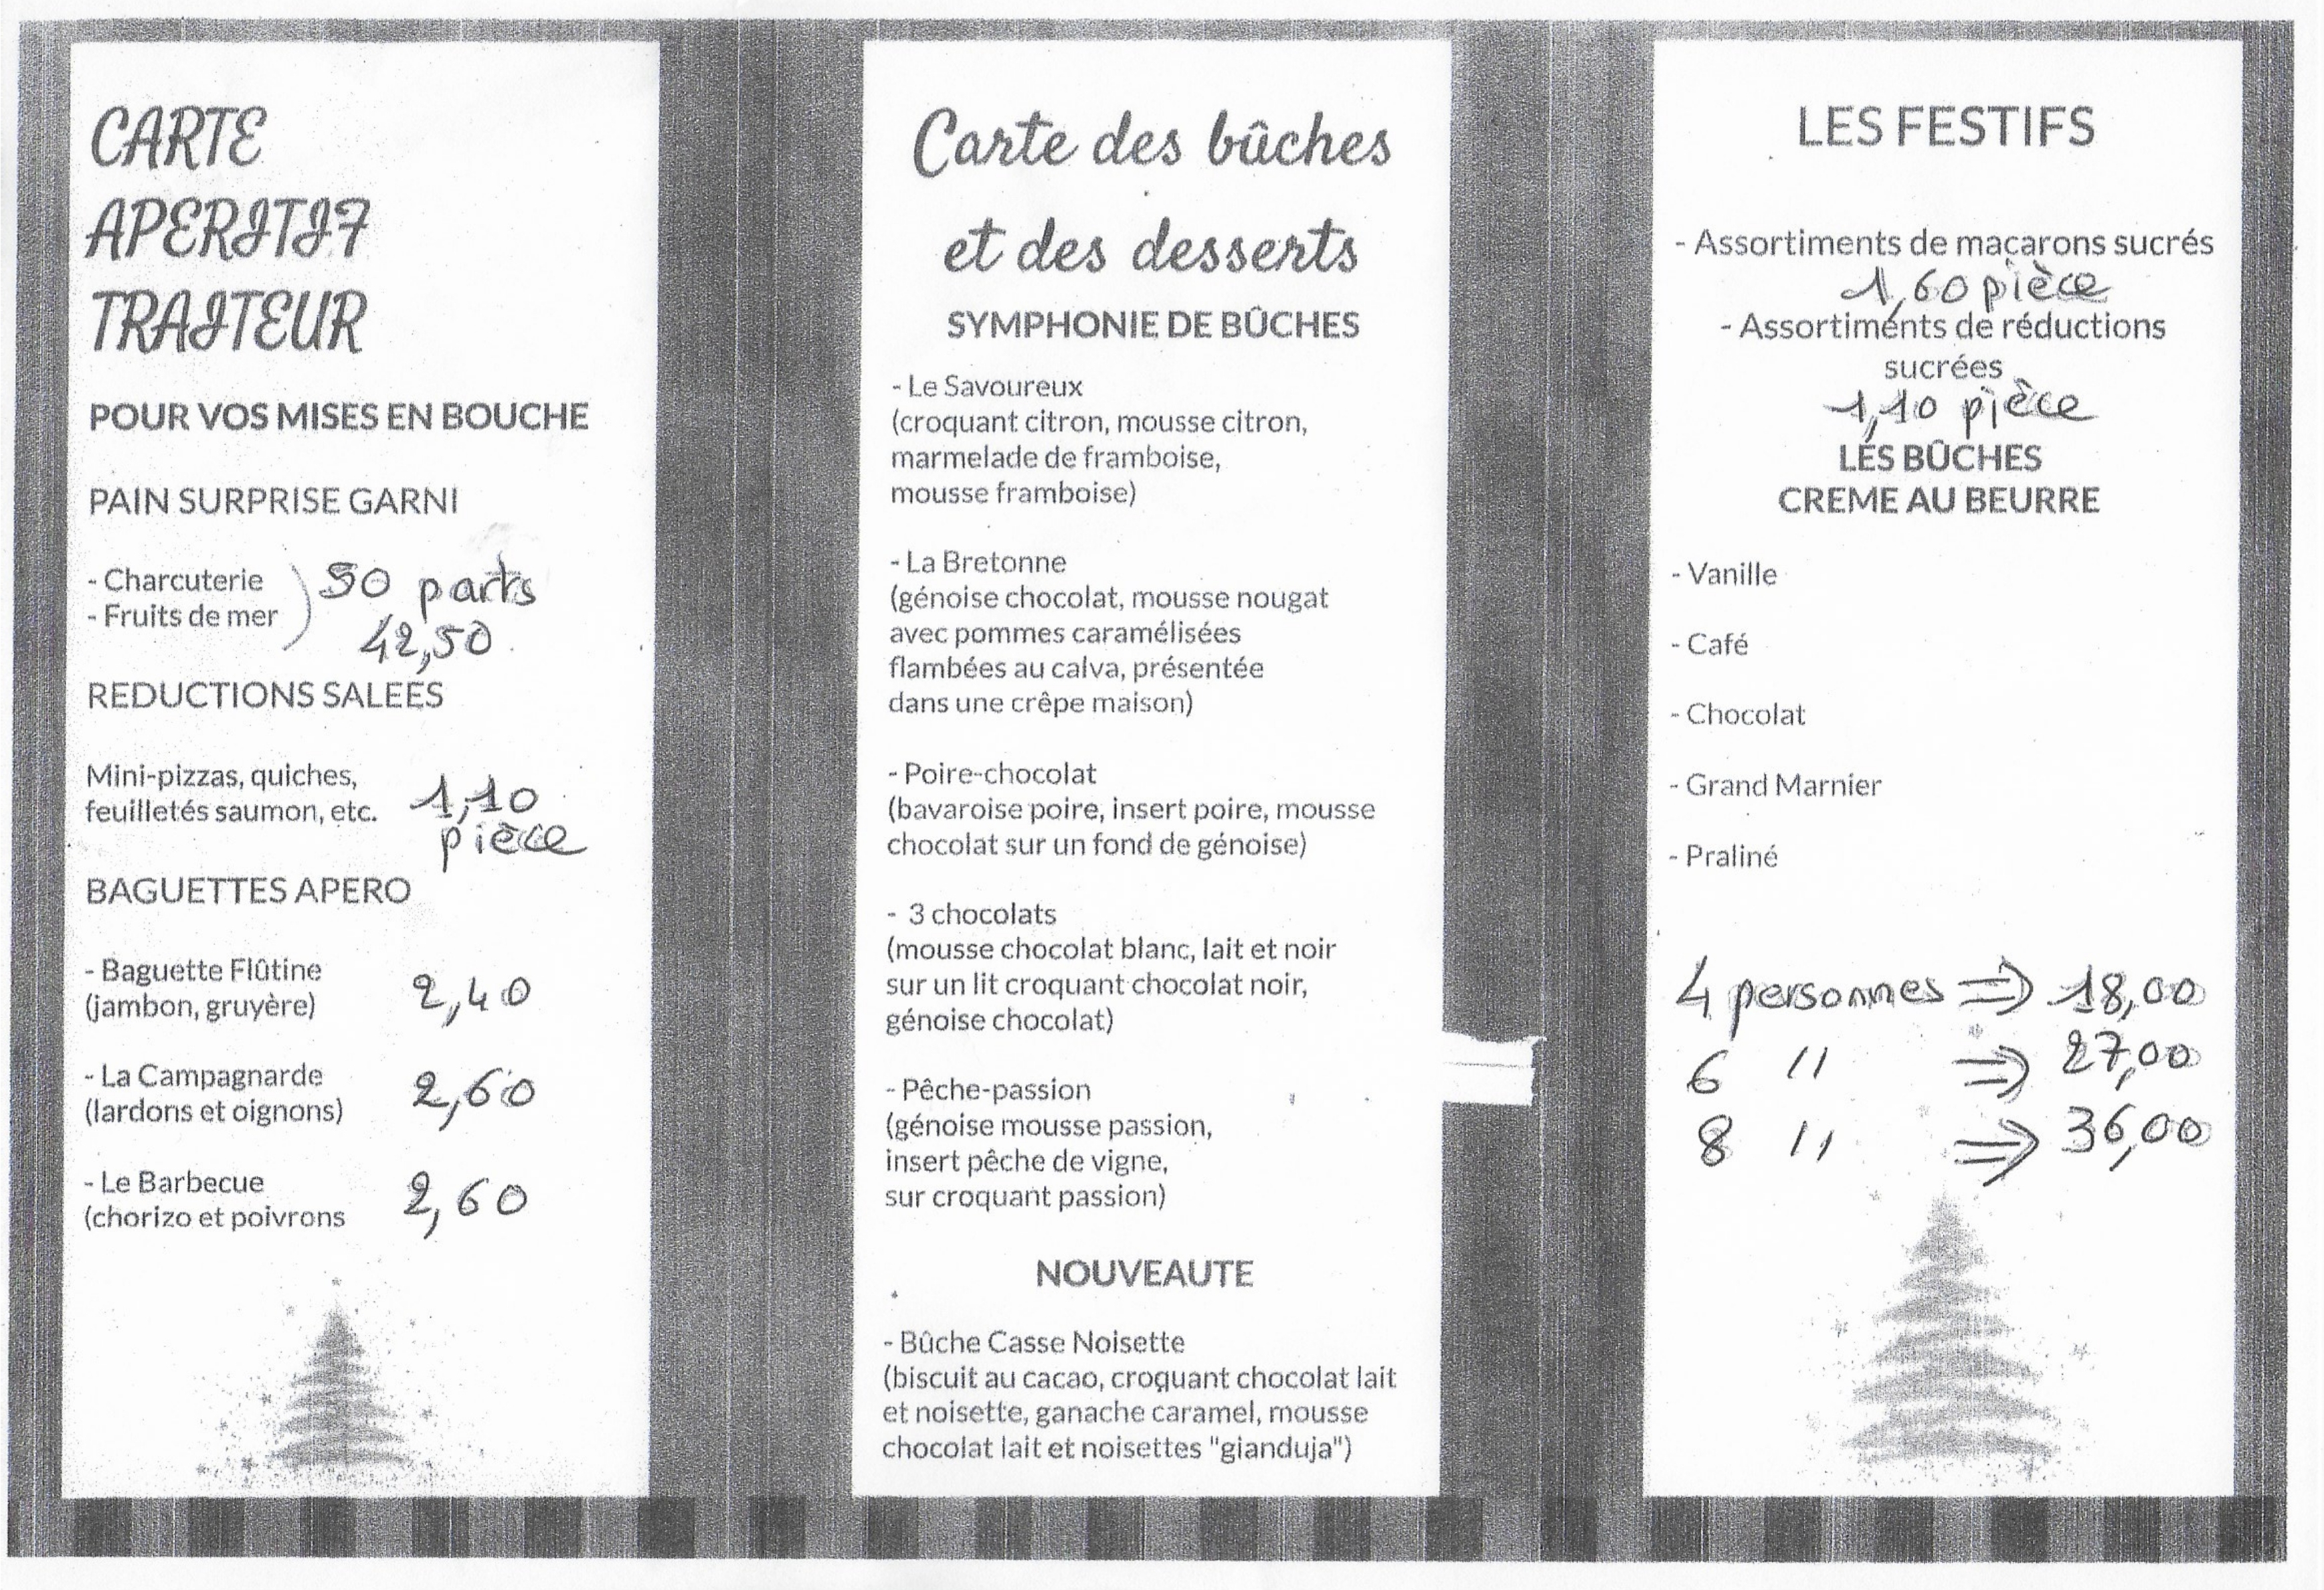 CARTE
APERITIF
TRAITEUR
POUR VOS MISES EN BOUCHE
PAIN SURPRISE GARNI
- Charcuterie
- Fruits de mer
50 parts
42,50
REDUCTIONS SALEES
Mini-pizzas, quiches,
feuilletés saumon, etc.
1,10
pièce
BAGUETTES APERO
- Baguette Flûtine
(jambon, gruyère)
2,40
- La Campagnarde
(lardons et oignons)
2,60
- Le Barbecue
(chorizo et poivrons
2,60
Carte des bûches
et des desserts
SYMPHONIE DE BÛCHES
- Le Savoureux
(croquant citron, mousse citron,
marmelade de framboise,
mousse framboise)
- La Bretonne
(génoise chocolat, mousse nougat
avec pommes caramélisées
flambées au calva, présentée
dans une crêpe maison)
- Poire-chocolat
(bavaroise poire, insert poire, mousse
chocolat sur un fond de génoise)
- 3 chocolats
(mousse chocolat blanc, lait et noir
sur un lit croquant chocolat noir,
génoise chocolat)
- Pêche-passion
(génoise mousse passion,
insert pêche de vigne,
sur croquant passion)
NOUVEAUTE
- Bûche Casse Noisette
(biscuit au cacao, croquant chocolat lait
et noisette, ganache caramel, mousse
chocolat lait et noisettes "gianduja")
LES FESTIFS
- Assortiments de macarons sucrés
1,60 pièce
- Assortiments de réductions
sucrées
1,10 pièce
LES BÛCHES
CREME AU BEURRE
- Vanille
- Café
- Chocolat
- Grand Marnier
- Praliné
4 personnes => 18,00
6 " => 27,00
8 " => 36,00